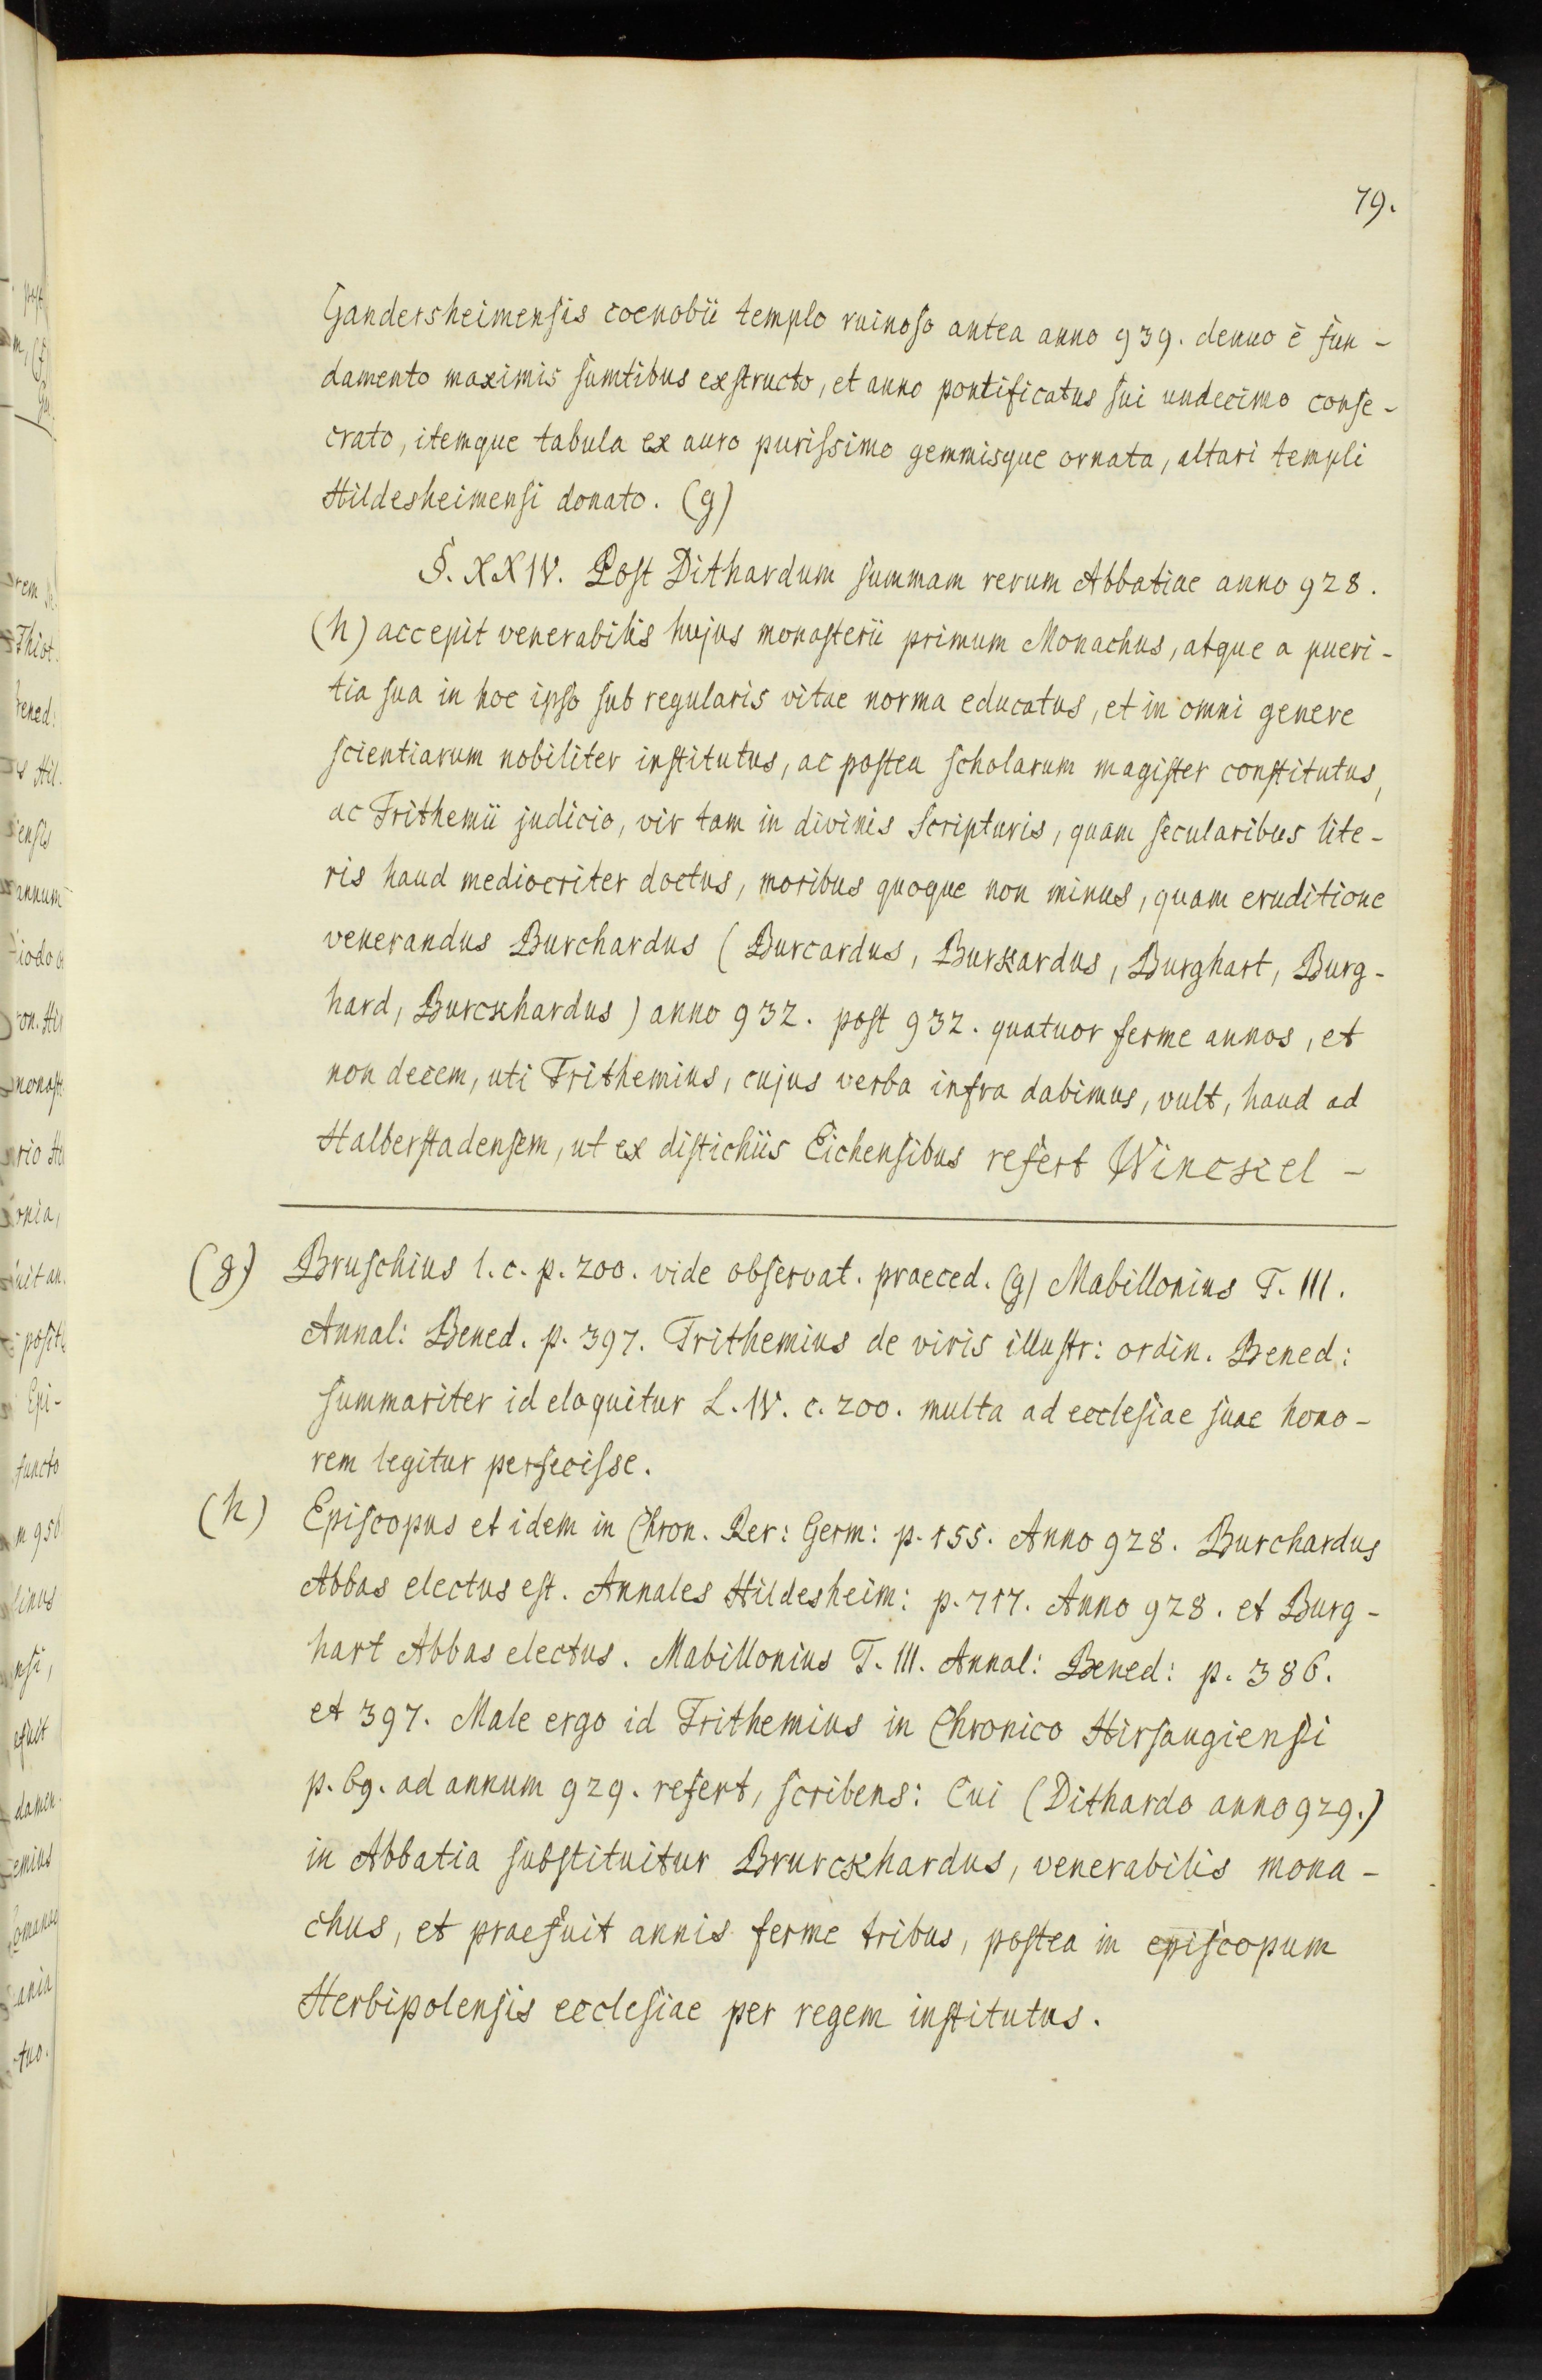 79.
Gandersheimensis coenobii templo ruinoso antea anno 939. denuo è fun-
damento maximis sumtibus exstructo, et anno pontificatus sui undecimo conse-
crato, itemque tabula ex auro purissimo gemmisque ornata, altari templi
Hildesheimensi donato. (g)
§. XXIV. Post Dithardum summam rerum Abbatiae anno 928.
(h) accepit venerabilis hujus monasterii primum Monachus, atque a pueri-
tia sua in hoc ipso sub regularis vitae norma educatus, et in omni genere
scientiarum nobiliter institutus, ac postea scholarum magister constitutus,
ac Trithemii judicio, vir tam in divinis Scripturis, quam secularibus lite-
ris haud mediocriter doctus, moribus quoque non minus, quam eruditione
venerandus Burchardus (Burcardus, Burkardus, Burghart, Burg-
hard, Burckhardus) anno 932. post 932. quatuor ferme annos, et
non decem, uti Trithemius, cujus verba infra dabimus, vult, haud ad
Halberstadensem, ut ex distichiis Eichensibus refert Winckel-
(g.) Bruschius l. c. p. 200. vide observat. praeced. (g) Mabillonius T. III.
Annal: Bened. p. 397. Trithemius de viris illustr: ordin. Bened:
summariter id eloquitur L. IV. c. 200. multa ad ecclesiae suae hono-
rem legitur perfecisse.
(h) Episcopus et idem in Chron. Rer: Germ: p. 155. Anno 928. Burchardus
Abbas electus est. Annales Hildesheim: p. 717. Anno 928. et Burg-
hart Abbas electus. Mabillonius T. III. Annal: Bened: p. 386.
et 397. Male ergo id Trithemius in Chronico Hirsaugiensi
p. 69. ad annum 929. refert, scribens: Cui (Dithardo anno 929.)
in Abbatia substituitur Brurckhardus, venerabilis mona-
chus, et praefuit annis ferme tribus, postea in episcopum
Herbipolensis ecclesiae per regem institutus.